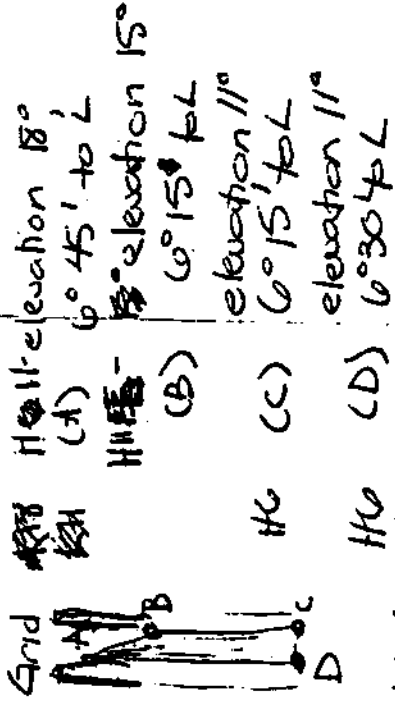 Grid
A
B
C
D
H11 - elevation 18°
(A) 6° 45' to L
H11 - elevation 15°
(B) 6° 15' to L
elevation 11°
H6 (C) 6° 15' to L
elevation 11°
H6 (D) 6° 30 to L